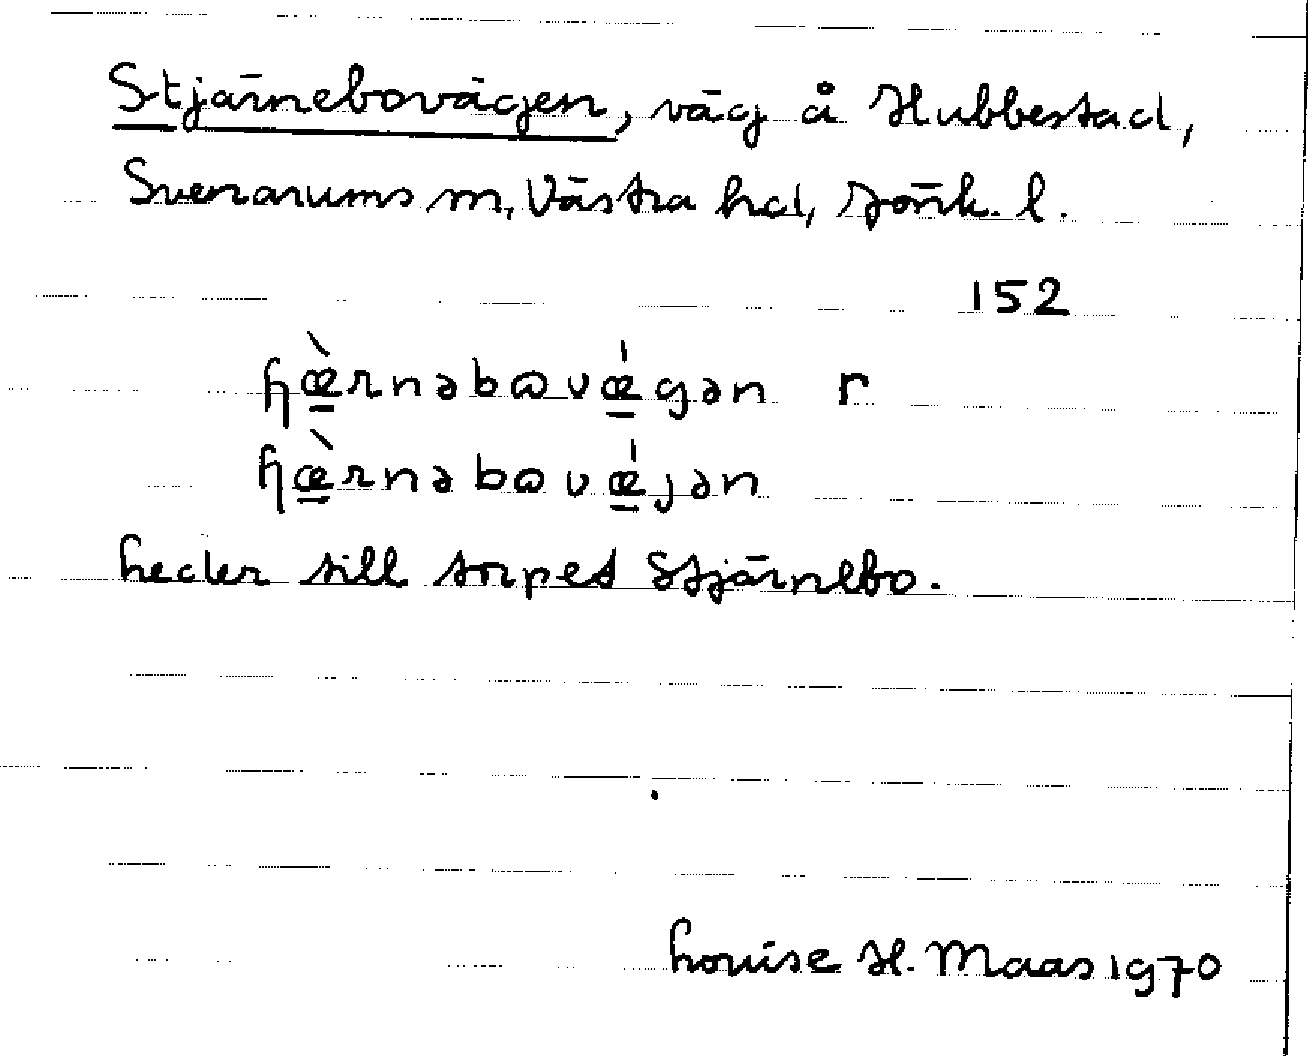 Stjärnebovägen, väg å Hubbestad,
Svenarums sn, Västra hd, Jönk. l.
152
ɧæ̀rnəbɷvǽgən r
ɧæ̀rnəbɷvǽjən
heder till torpet Stjärnebo.
Louise H. Maas 1970